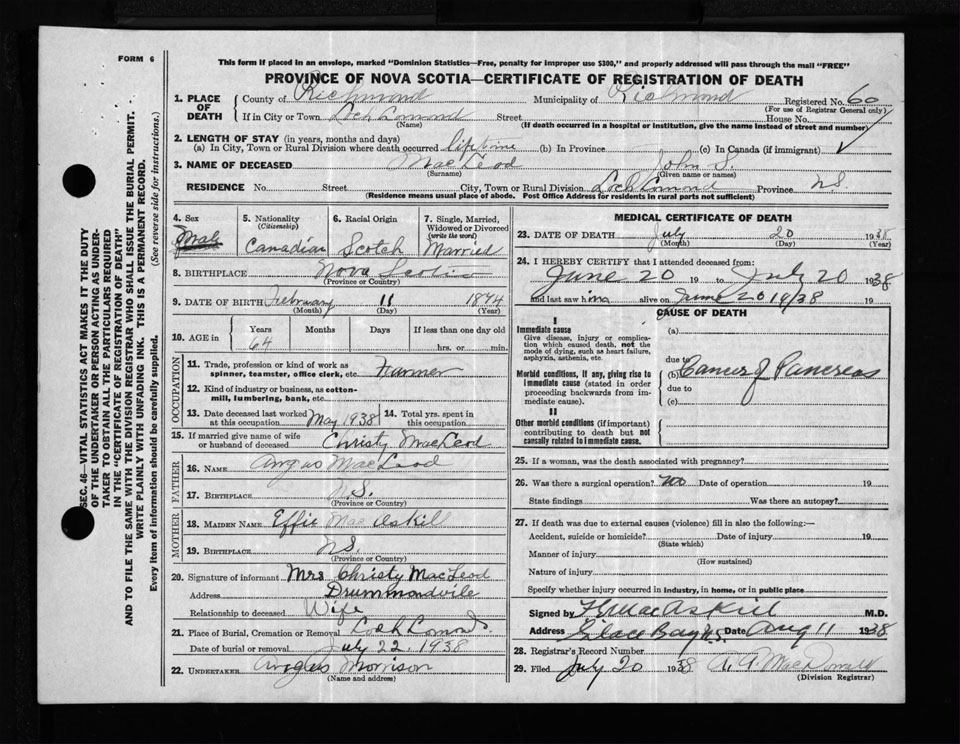 FORM 6
This form if placed in an envelope, marked "Dominion Statistics—Free, penalty for improper use $300," and properly addressed will pass through the mail "FREE"
PROVINCE OF NOVA SCOTIA—CERTIFICATE OF REGISTRATION OF DEATH
1. PLACE OF DEATH
County of Richmond Municipality of Richmond Registered No. 60
(For use of Registrar General only)
If in City or Town Loch Lomond Street House No.
(Name) (If death occurred in a hospital or institution, give the name instead of street and number)
2. LENGTH OF STAY (in years, months and days)
(a) In City, Town or Rural Division where death occurred lifetime (b) In Province (c) In Canada (if immigrant)
3. NAME OF DECEASED MacLeod John S.
(Surname) (Given name or names)
RESIDENCE No. Street City, Town or Rural Division Loch Lomond Province NS
(Residence means usual place of abode. Post Office Address for residents in rural parts not sufficient)
4. Sex Male
5. Nationality (Citizenship) Canadian
6. Racial Origin Scotch
7. Single, Married, Widowed or Divorced (write the word) Married
8. BIRTHPLACE Nova Scotia
(Province or Country)
9. DATE OF BIRTH February 11 1874
(Month) (Day) (Year)
10. AGE in Years 64 Months Days If less than one day old
hrs. or min.
OCCUPATION
11. Trade, profession or kind of work as spinner, teamster, office clerk, etc. Farmer
12. Kind of industry or business, as cotton-mill, lumbering, bank, etc.
13. Date deceased last worked at this occupation May 1938
14. Total yrs. spent in this occupation
15. If married give name of wife or husband of deceased Christy MacLeod
FATHER
16. NAME Angus MacLeod
17. BIRTHPLACE N.S.
(Province or Country)
MOTHER
18. MAIDEN NAME Effie MacAskill
19. BIRTHPLACE NS.
(Province or Country)
20. Signature of informant Mrs Christy MacLeod
Address Drummondvile
Relationship to deceased Wife
21. Place of Burial, Cremation or Removal Loch Lomond
Date of burial or removal July 22, 1938
22. UNDERTAKER Angus Morrison
(Name and address)
MEDICAL CERTIFICATE OF DEATH
23. DATE OF DEATH July 20 1938
(Month) (Day) (Year)
24. I HEREBY CERTIFY that I attended deceased from:
June 20 19 to July 20 1938
and last saw him alive on June 20 19/38 19
CAUSE OF DEATH
I
Immediate cause
Give disease, injury or complication which caused death, not the mode of dying, such as heart failure, asphyxia, asthenia, etc.
(a)
due to
Morbid conditions, if any, giving rise to immediate cause (stated in order proceeding backwards from immediate cause).
(b) Cancer of Pancreas
due to
(c)
II
Other morbid conditions (if important) contributing to death but not causally related to immediate cause.
25. If a woman, was the death associated with pregnancy?
26. Was there a surgical operation? no Date of operation 19
State findings Was there an autopsy?
27. If death was due to external causes (violence) fill in also the following:—
Accident, suicide or homicide? Date of injury 19
(State which)
Manner of injury
(How sustained)
Nature of injury
Specify whether injury occurred in industry, in home, or in public place
Signed by MacAskill M.D.
Address Glace Bay N.S. Date Aug 11 1938
28. Registrar's Record Number
29. Filed July 20 1938 A. A. MacDonald
(Division Registrar)
SEC. 46—VITAL STATISTICS ACT MAKES IT THE DUTY
OF THE UNDERTAKER OR PERSON ACTING AS UNDER-
TAKER TO OBTAIN ALL THE PARTICULARS REQUIRED
IN THE "CERTIFICATE OF REGISTRATION OF DEATH"
AND TO FILE THE SAME WITH THE DIVISION REGISTRAR WHO SHALL ISSUE THE BURIAL PERMIT.
WRITE PLAINLY WITH UNFADING INK. THIS IS A PERMANENT RECORD.
Every item of information should be carefully supplied. (See reverse side for instructions.)